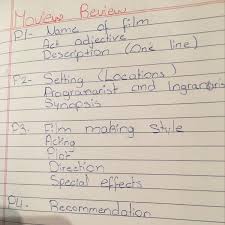 Moview Review
P1- Name of film
Act adjective
Description (One line)
P2- Setting (Locations)
Programarist and Ingranoris
Synopsis
P3. Film making style
Acting
Plot
Direction
Special effects
P4. Recommendation